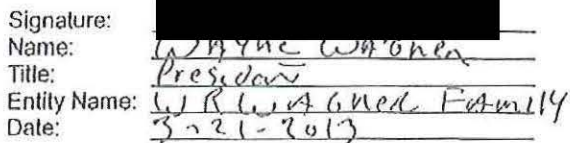 Signature:
Name: WAYNE WAGNER
Title: President
Entity Name: W R WAGNER FAMILY
Date: 3-21-2013